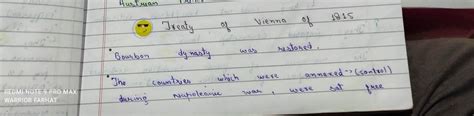 Austrian
Treaty of Vienna of 1815
• Bourbon dynasty was restored.
• The countries which were annexed → (control)
during Napoleonic was, were sat free
REDMI NOTE 9 PRO MAX
WARRIOR FARHAT